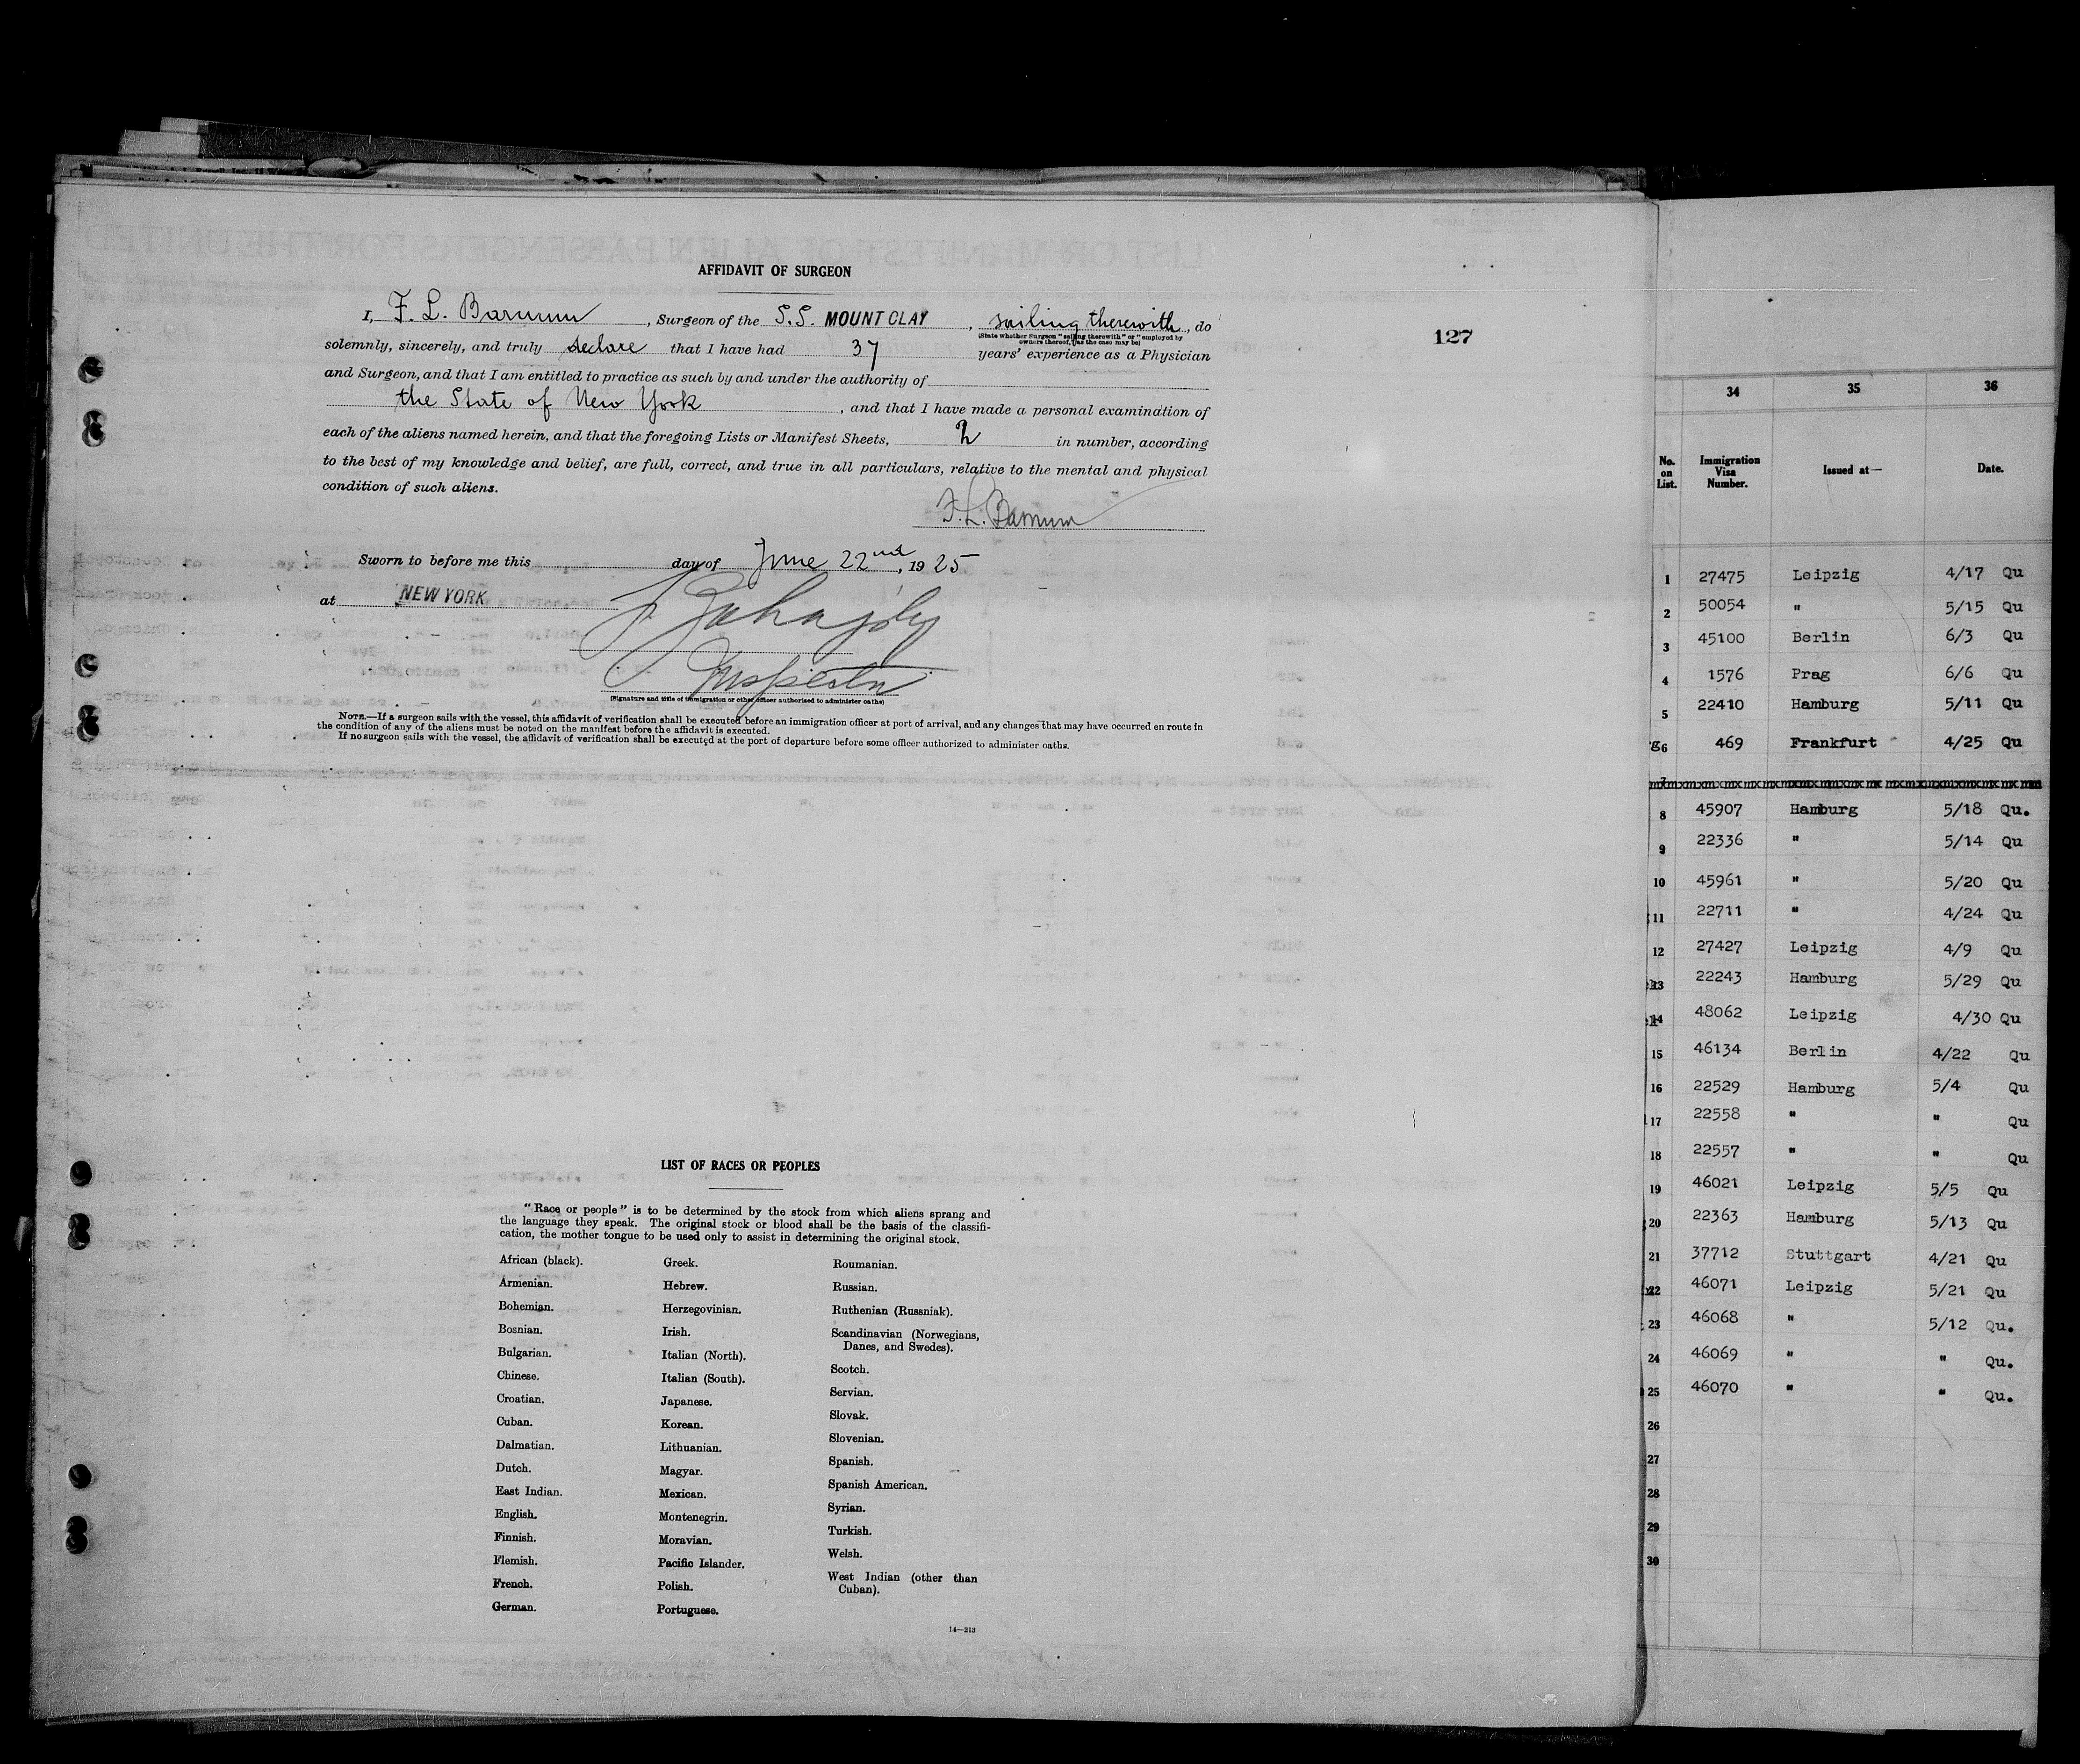 AFFIDAVIT OF SURGEON
I, F. L. Barnum, Surgeon of the S.S. MOUNT CLAY, sailing therewith, do
(State whether Surgeon "sailing therewith" or "employed by owners thereof," as the case may be)
solemnly, sincerely, and truly declare that I have had 37 years' experience as a Physician
and Surgeon, and that I am entitled to practice as such by and under the authority of
the State of New York, and that I have made a personal examination of
each of the aliens named herein, and that the foregoing Lists or Manifest Sheets, 2 in number, according
to the best of my knowledge and belief, are full, correct, and true in all particulars, relative to the mental and physical
condition of such aliens.
F. L. Barnum
Sworn to before me this day of June 22nd, 1925
at NEW YORK
Inspector
(Signature and title of immigration or other officer authorized to administer oaths)
NOTE.—If a surgeon sails with the vessel, this affidavit of verification shall be executed before an immigration officer at port of arrival, and any changes that may have occurred en route in
the condition of any of the aliens must be noted on the manifest before the affidavit is executed.
If no surgeon sails with the vessel, the affidavit of verification shall be executed at the port of departure before some officer authorized to administer oaths.
LIST OF RACES OR PEOPLES
"Race or people" is to be determined by the stock from which aliens sprang and
the language they speak. The original stock or blood shall be the basis of the classifi-
cation, the mother tongue to be used only to assist in determining the original stock.
African (black).
Armenian.
Bohemian.
Bosnian.
Bulgarian.
Chinese.
Croatian.
Cuban.
Dalmatian.
Dutch.
East Indian.
English.
Finnish.
Flemish.
French.
German.
Greek.
Hebrew.
Herzegovinian.
Irish.
Italian (North).
Italian (South).
Japanese.
Korean.
Lithuanian.
Magyar.
Mexican.
Montenegrin.
Moravian.
Pacific Islander.
Polish.
Portuguese.
Roumanian.
Russian.
Ruthenian (Russniak).
Scandinavian (Norwegians,
Danes, and Swedes).
Scotch.
Servian.
Slovak.
Slovenian.
Spanish.
Spanish American.
Syrian.
Turkish.
Welsh.
West Indian (other than
Cuban).
14—213
127
34 35 36
No. on List. Immigration Visa Number. Issued at— Date.
1 27475 Leipzig 4/17 Qu
2 50054 " 5/15 Qu
3 45100 Berlin 6/3 Qu
4 1576 Prag 6/6 Qu
5 22410 Hamburg 5/11 Qu
6 469 Frankfurt 4/25 Qu
7
8 45907 Hamburg 5/18 Qu.
9 22336 " 5/14 Qu
10 45961 " 5/20 Qu
11 22711 " 4/24 Qu
12 27427 Leipzig 4/9 Qu
13 22243 Hamburg 5/29 Qu
14 48062 Leipzig 4/30 Qu
15 46134 Berlin 4/22 Qu
16 22529 Hamburg 5/4 Qu
17 22558 " " Qu
18 22557 " " Qu
19 46021 Leipzig 5/5 Qu
20 22363 Hamburg 5/13 Qu
21 37712 Stuttgart 4/21 Qu
22 46071 Leipzig 5/21 Qu
23 46068 " 5/12 Qu.
24 46069 " " Qu.
25 46070 " " Qu.
26
27
28
29
30